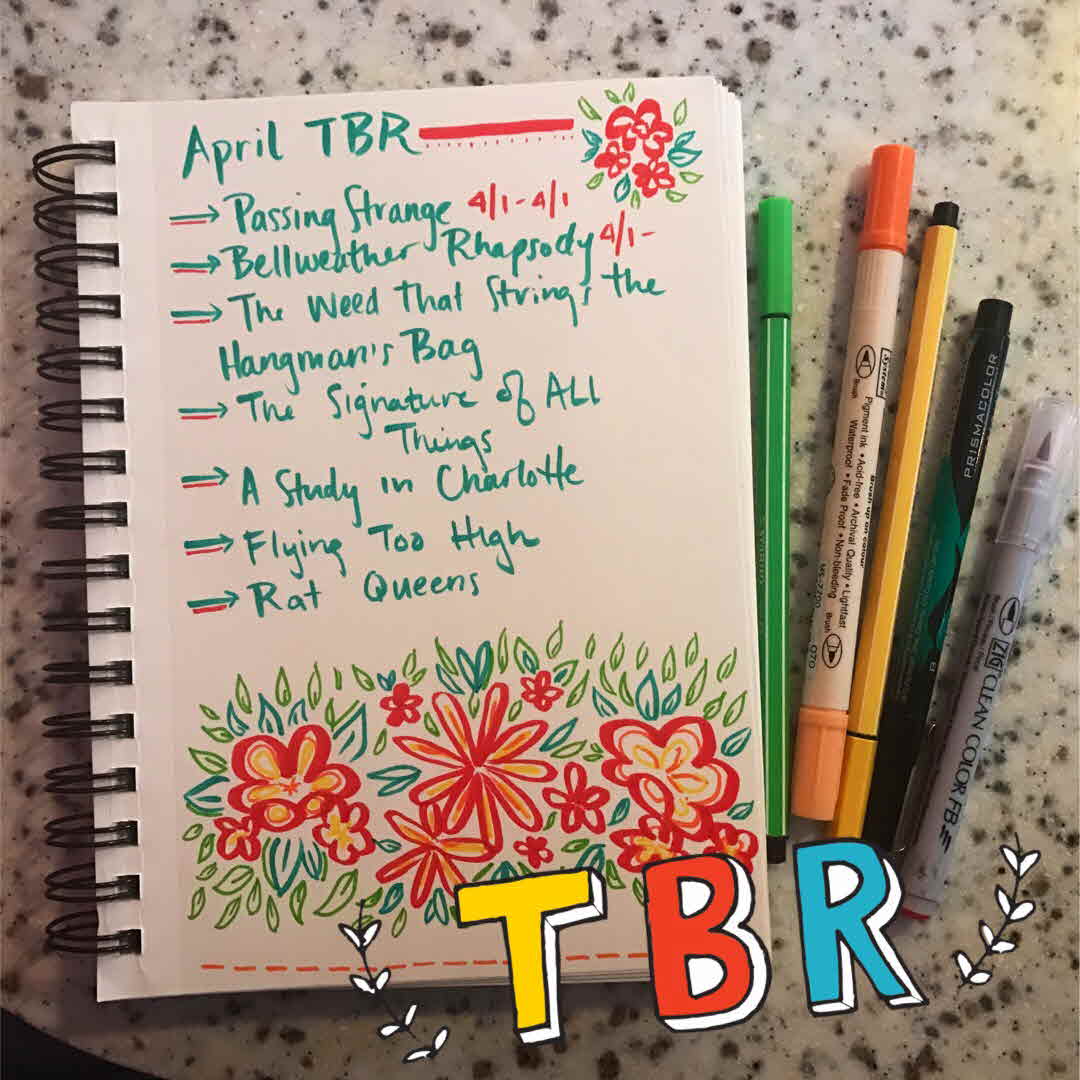 April TBR
Passing Strange 4/1-4/1
Bellweather Rhapsody 4/1-
The Weed That Strings the
Hangman's Bag
The Signature of All
Things
A Study in Charlotte
Flying Too High
Rat Queens
Systema
Brush
Pigment ink • Acid-free • Archival Quality • Lightfast
Waterproof • Fade Proof • Non-bleeding
Brush
070
PRISMACOLOR
B
ZIG CLEAN COLOR FB
TBR